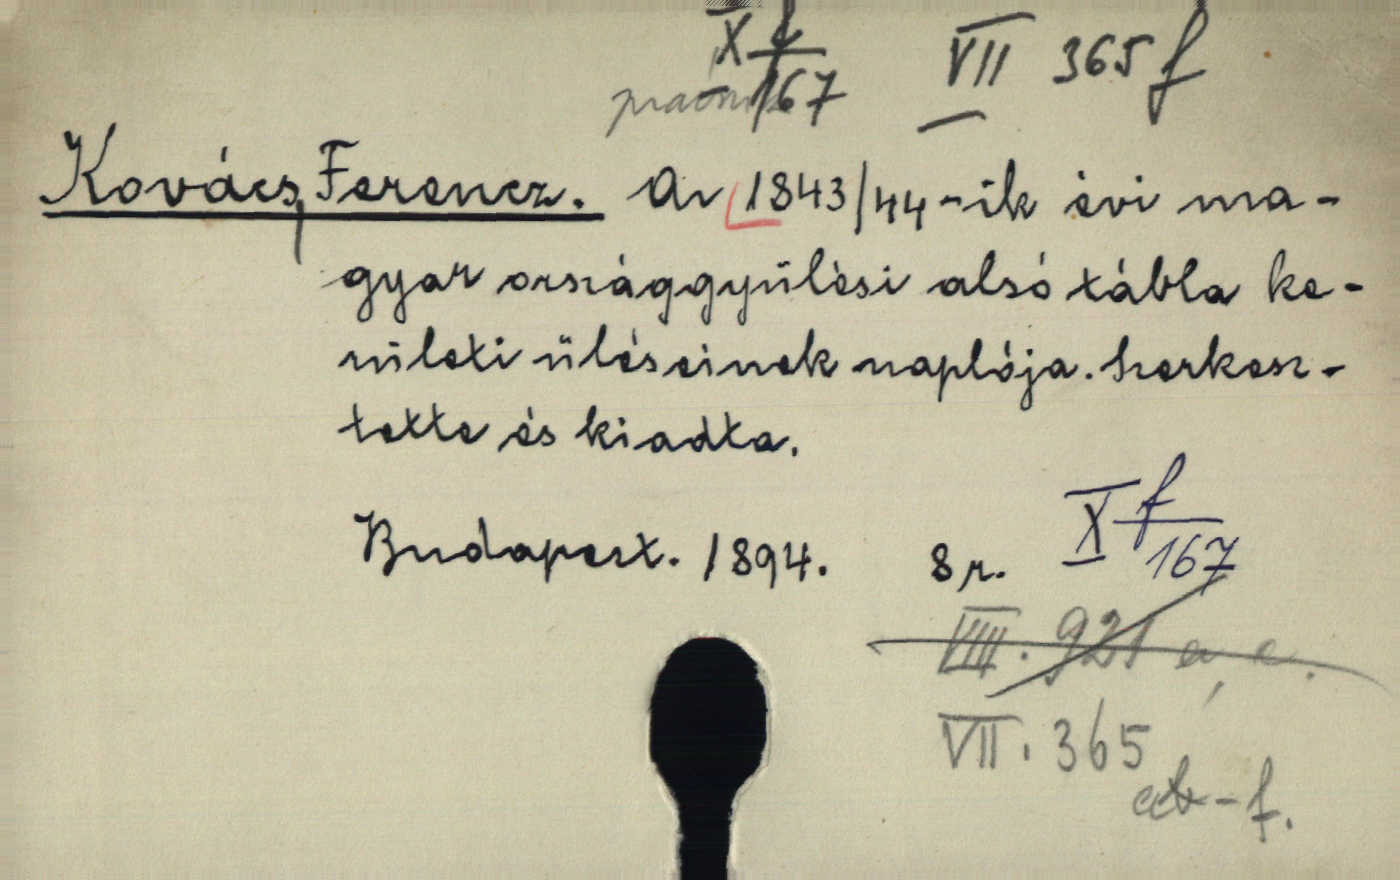 X f/167 VII 365 f
Kovács, Ferencz. Az 1843/44-ik évi ma-
gyar országgyülési alsó tábla ke-
rületi üléseinek naplója. Szerkesz-
tette és kiadta.
Budapest. 1894. 8r. X f/167
VIII. 921
VII. 365
f.